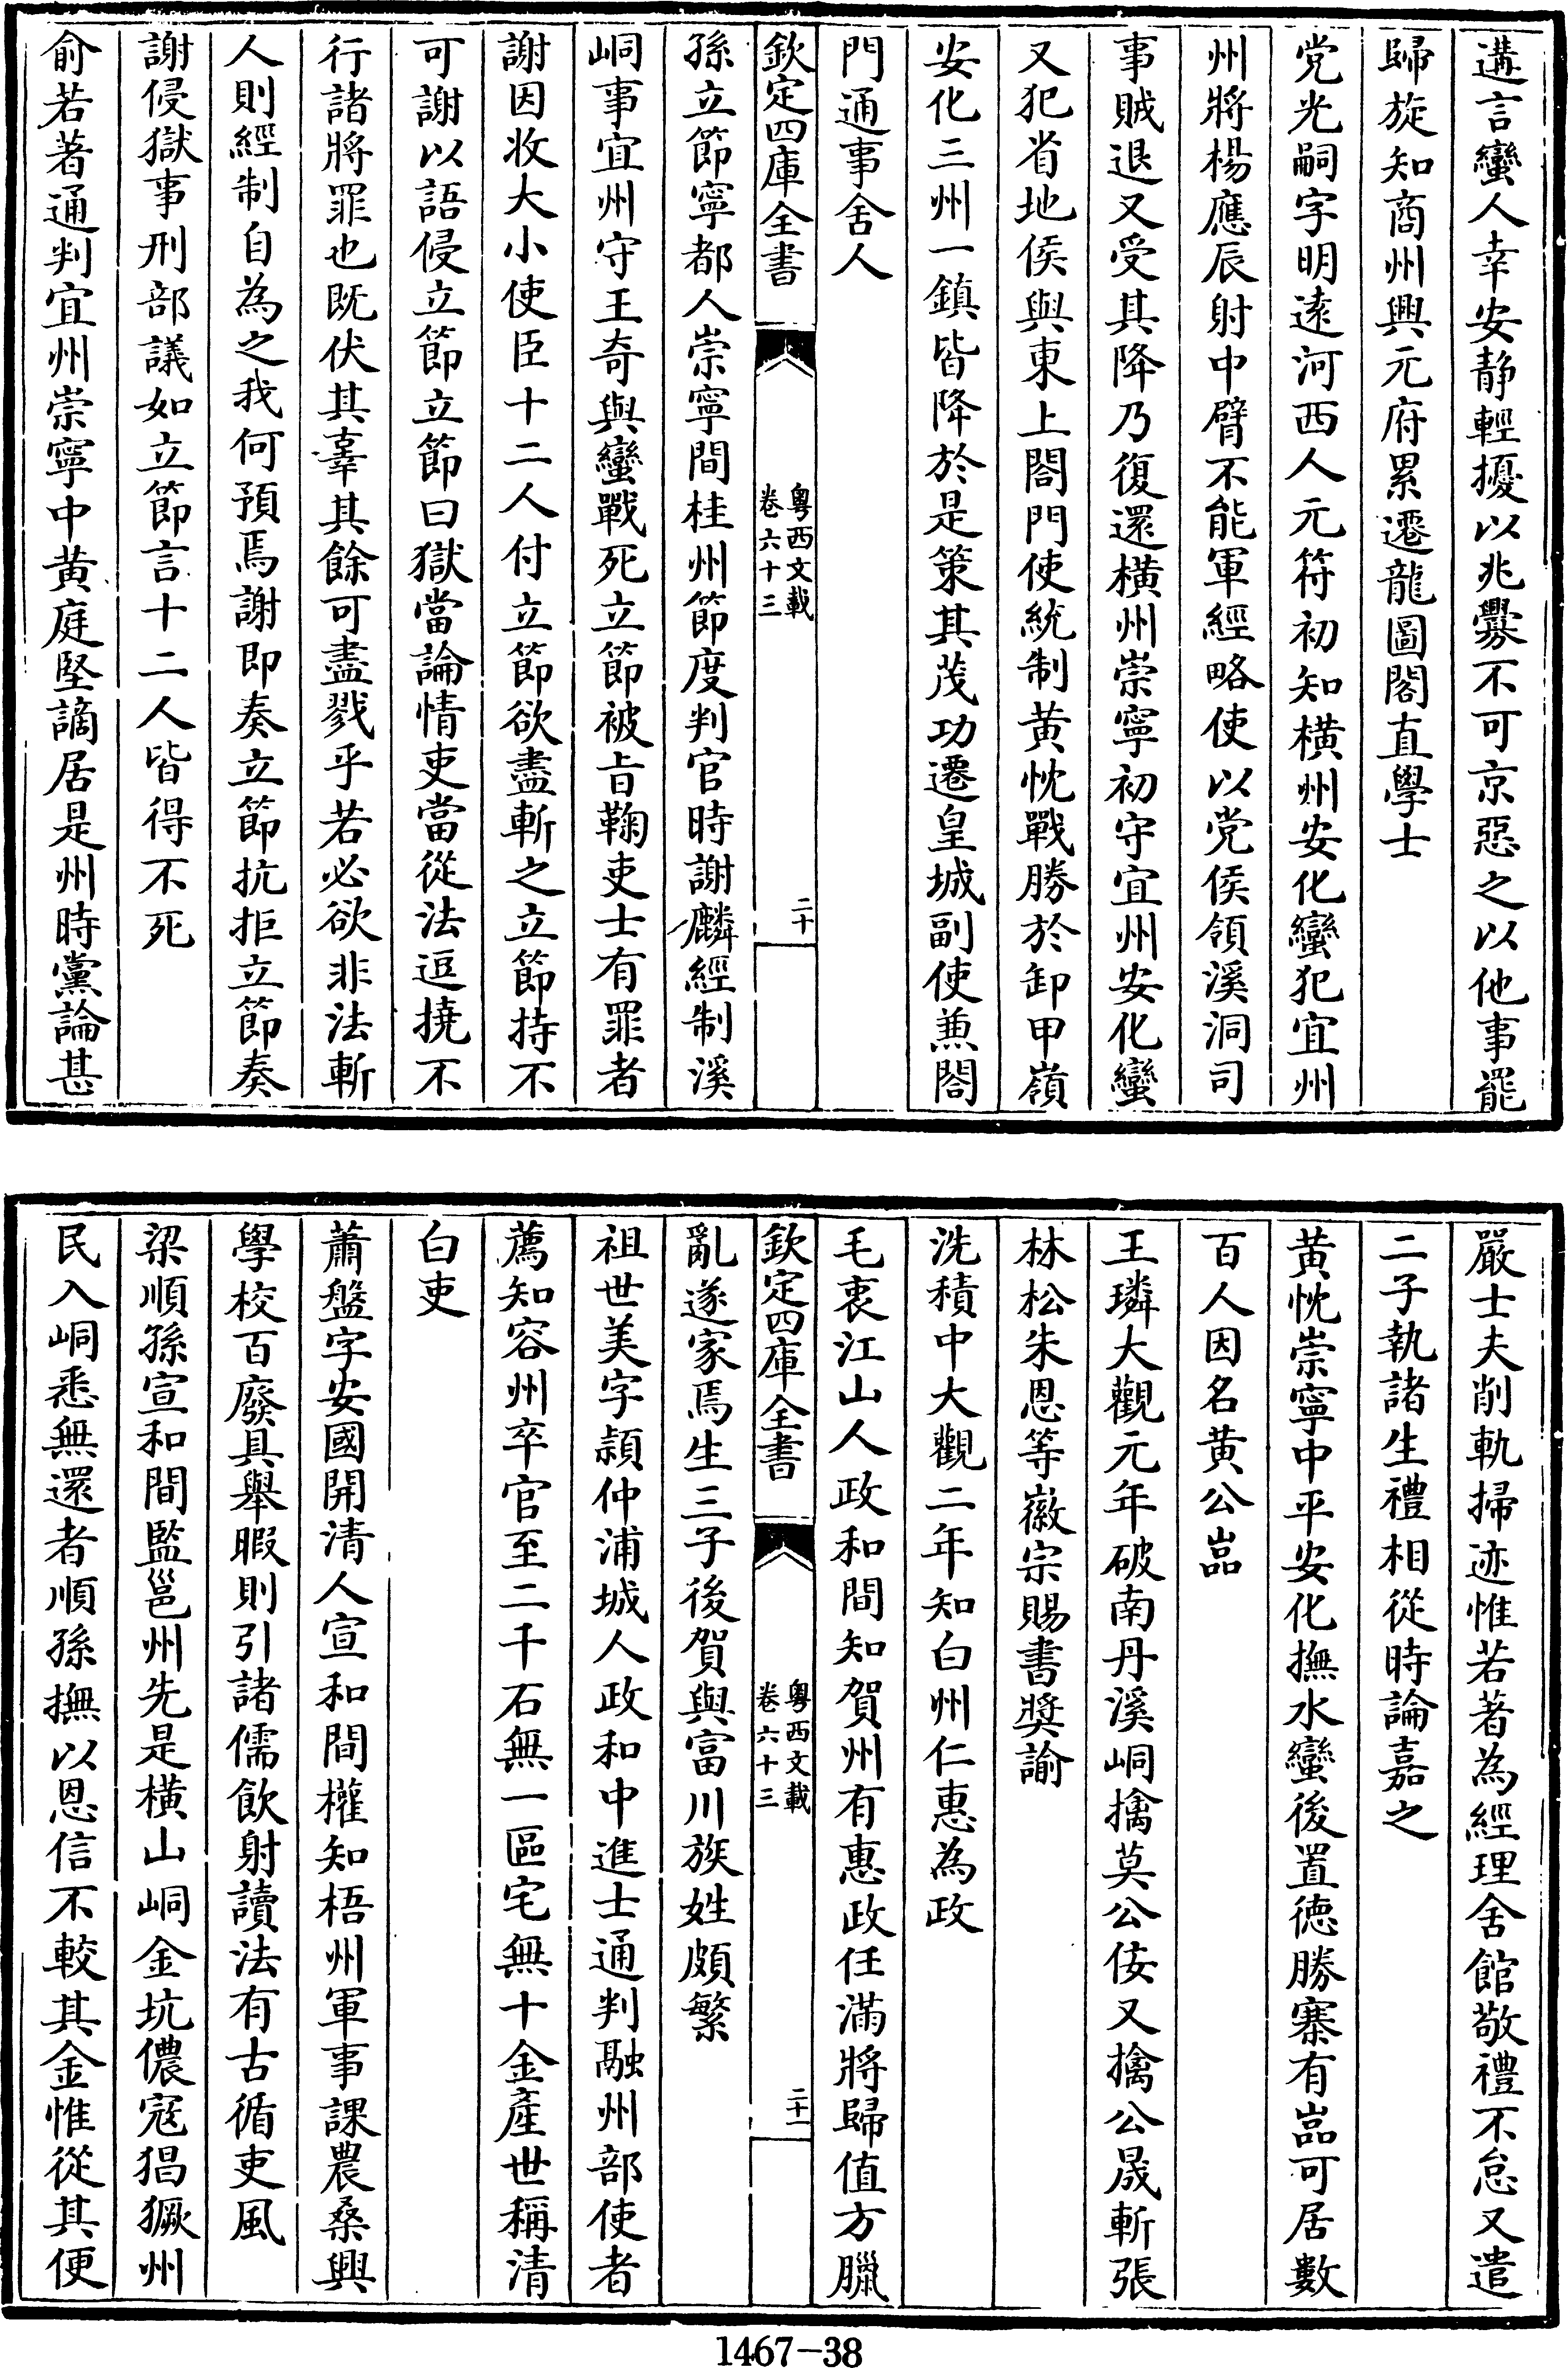 遘言蠻人幸安静輕擾以兆釁不可京惡之以他事罷
歸旋知商州興元府累遷龍圖閣直學士
党光嗣字明逺河西人元符初知横州安化蠻犯宜州
州將楊應辰射中臂不能軍經略使以党侯領溪洞司
事賊退又受其降乃復還横州崇寧初守宜州安化蠻
又犯省地侯與東上閤門使統制黄忱戰勝於卸甲嶺
安化三州一鎮皆降於是策其茂功遷皇城副使兼閤
門通事舍人
欽定四庫全書
粤西文載
卷六十三
二十
孫立節寧都人崇寧間桂州節度判官時謝麟經制溪
峒事宜州守王奇與蠻戰死立節被㫖鞫吏士有罪者
謝因收大小使臣十二人付立節欲盡斬之立節持不
可謝以語侵立節立節曰獄當論情吏當從法逗撓不
行諸將罪也既伏其辜其餘可盡戮乎若必欲非法斬
人則經制自為之我何預焉謝即奏立節抗拒立節奏
謝侵獄事刑部議如立節言十二人皆得不死
俞若著通判宜州崇寧中黄庭堅謫居是州時黨論甚
嚴士夫削軌掃迹惟若著為經理舍館敬禮不怠又遣
二子執諸生禮相從時論嘉之
黄忱崇寧中平安化撫水蠻後置徳勝寨有嵓可居數
百人因名黄公嵓
王璘大觀元年破南丹溪峒擒莫公佞又擒公晟斬張
林松朱恩等徽宗賜書奬諭
洗積中大觀二年知白州仁惠為政
毛衷江山人政和間知賀州有惠政任滿將歸值方臘
欽定四庫全書
粤西文載
卷六十三
二十一
亂遂家焉生三子後賀與富川族姓頗繁
祖世美字頴仲浦城人政和中進士通判融州部使者
薦知容州卒官至二千石無一區宅無十金産世稱清
白吏
蕭盤字安國開清人宣和間權知梧州軍事課農桑興
學校百廢具舉暇則引諸儒飲射讀法有古循吏風
梁順孫宣和間監邕州先是横山峒金坑儂冦猖獗州
民入峒悉無還者順孫撫以恩信不較其金惟從其便
1467-38